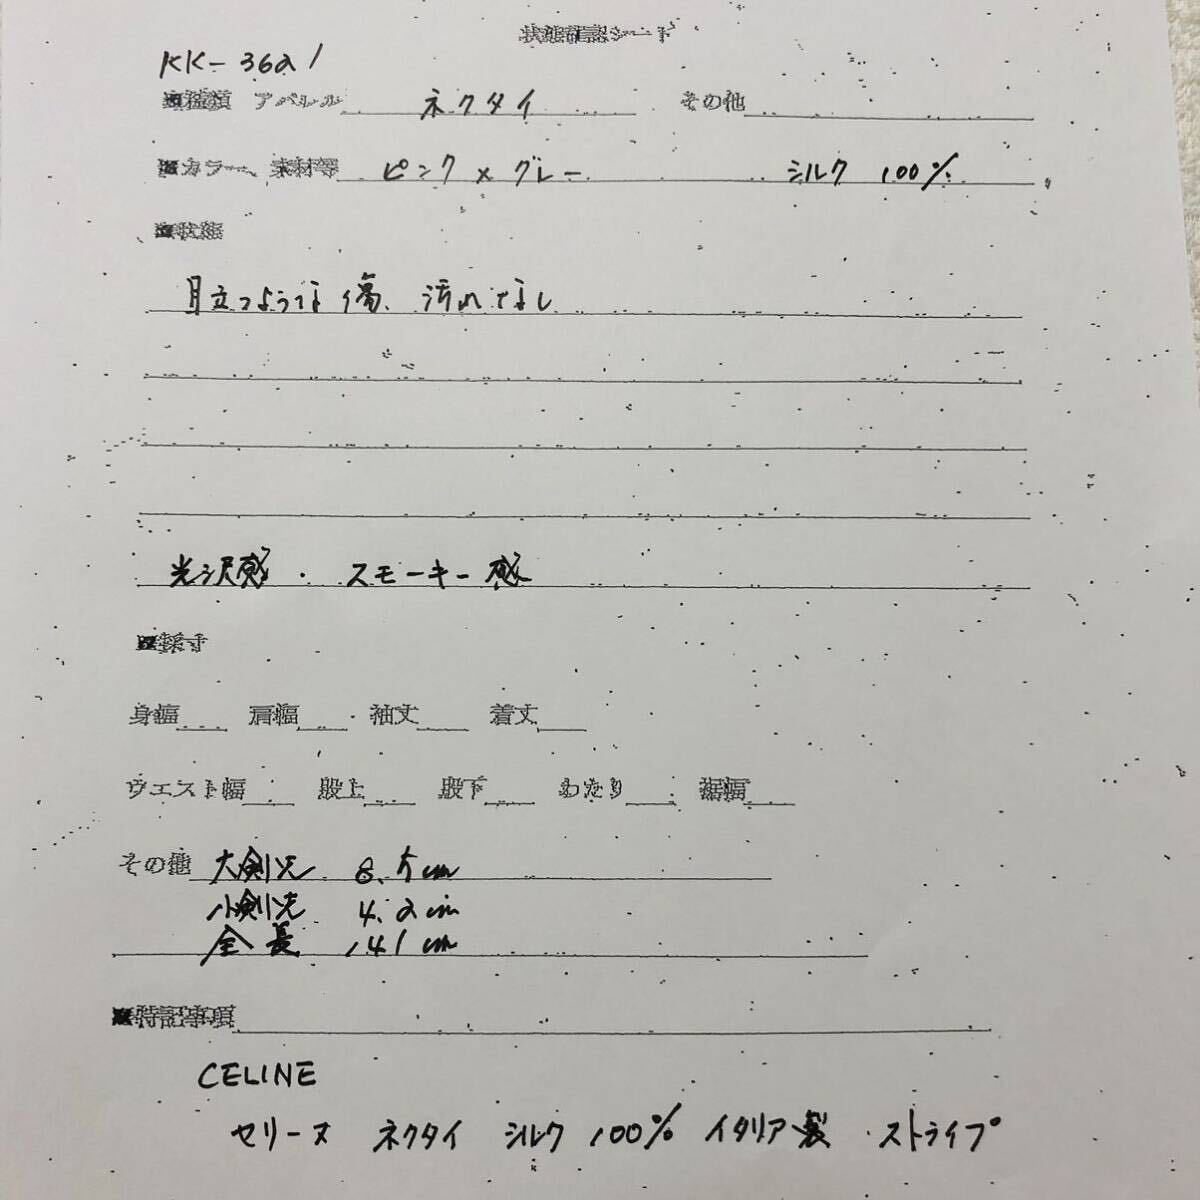 状態確認シート
KK-3621
■種類 アパレル ネクタイ その他
■カラー、素材等 ピンク×グレー シルク 100%
■状態
目立つような傷、汚れなし
光沢感・スモーキー感
■採寸
身幅 肩幅 袖丈 着丈
ウエスト幅 股上 股下 わたり 裾幅
その他 大剣先 8.5cm
小剣先 4.2cm
全長 141cm
■特記事項
CELINE
セリーヌ ネクタイ シルク 100% イタリア製 ストライプ